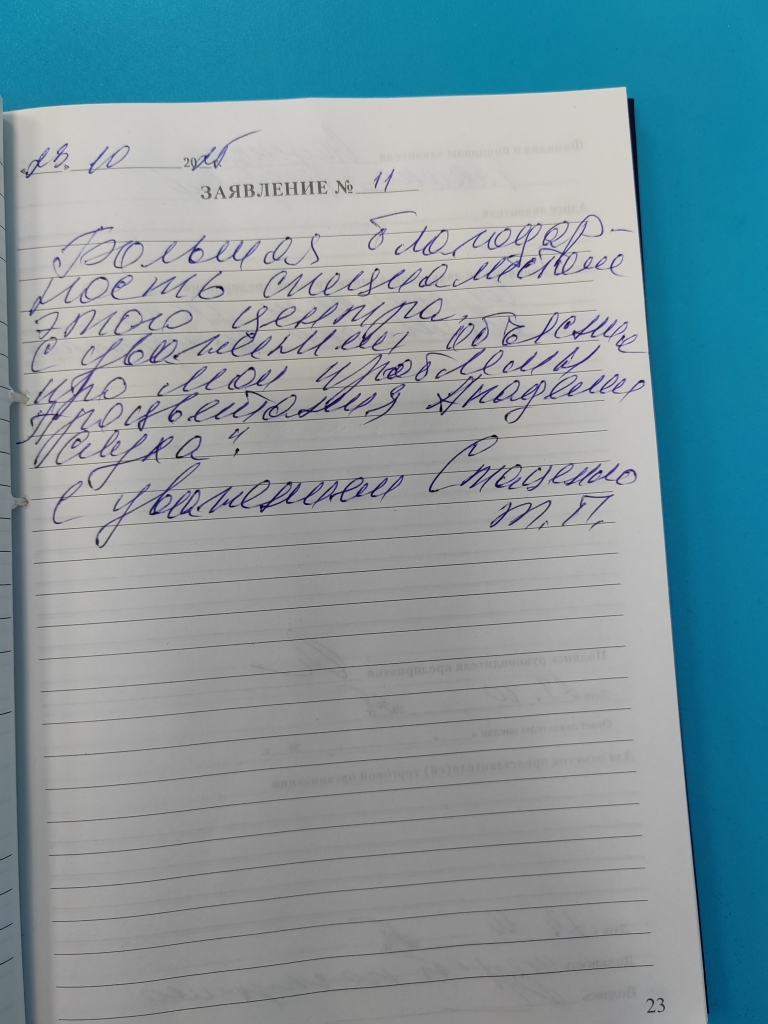 «23» 10 2025
ЗАЯВЛЕНИЕ № 11
Большая благодар-
ность специалистам
этого центра.
С уважением объяснили
про мои проблемы
Процветания Академии
"Слуха".
С уважением Стаценко
Т. П.
23